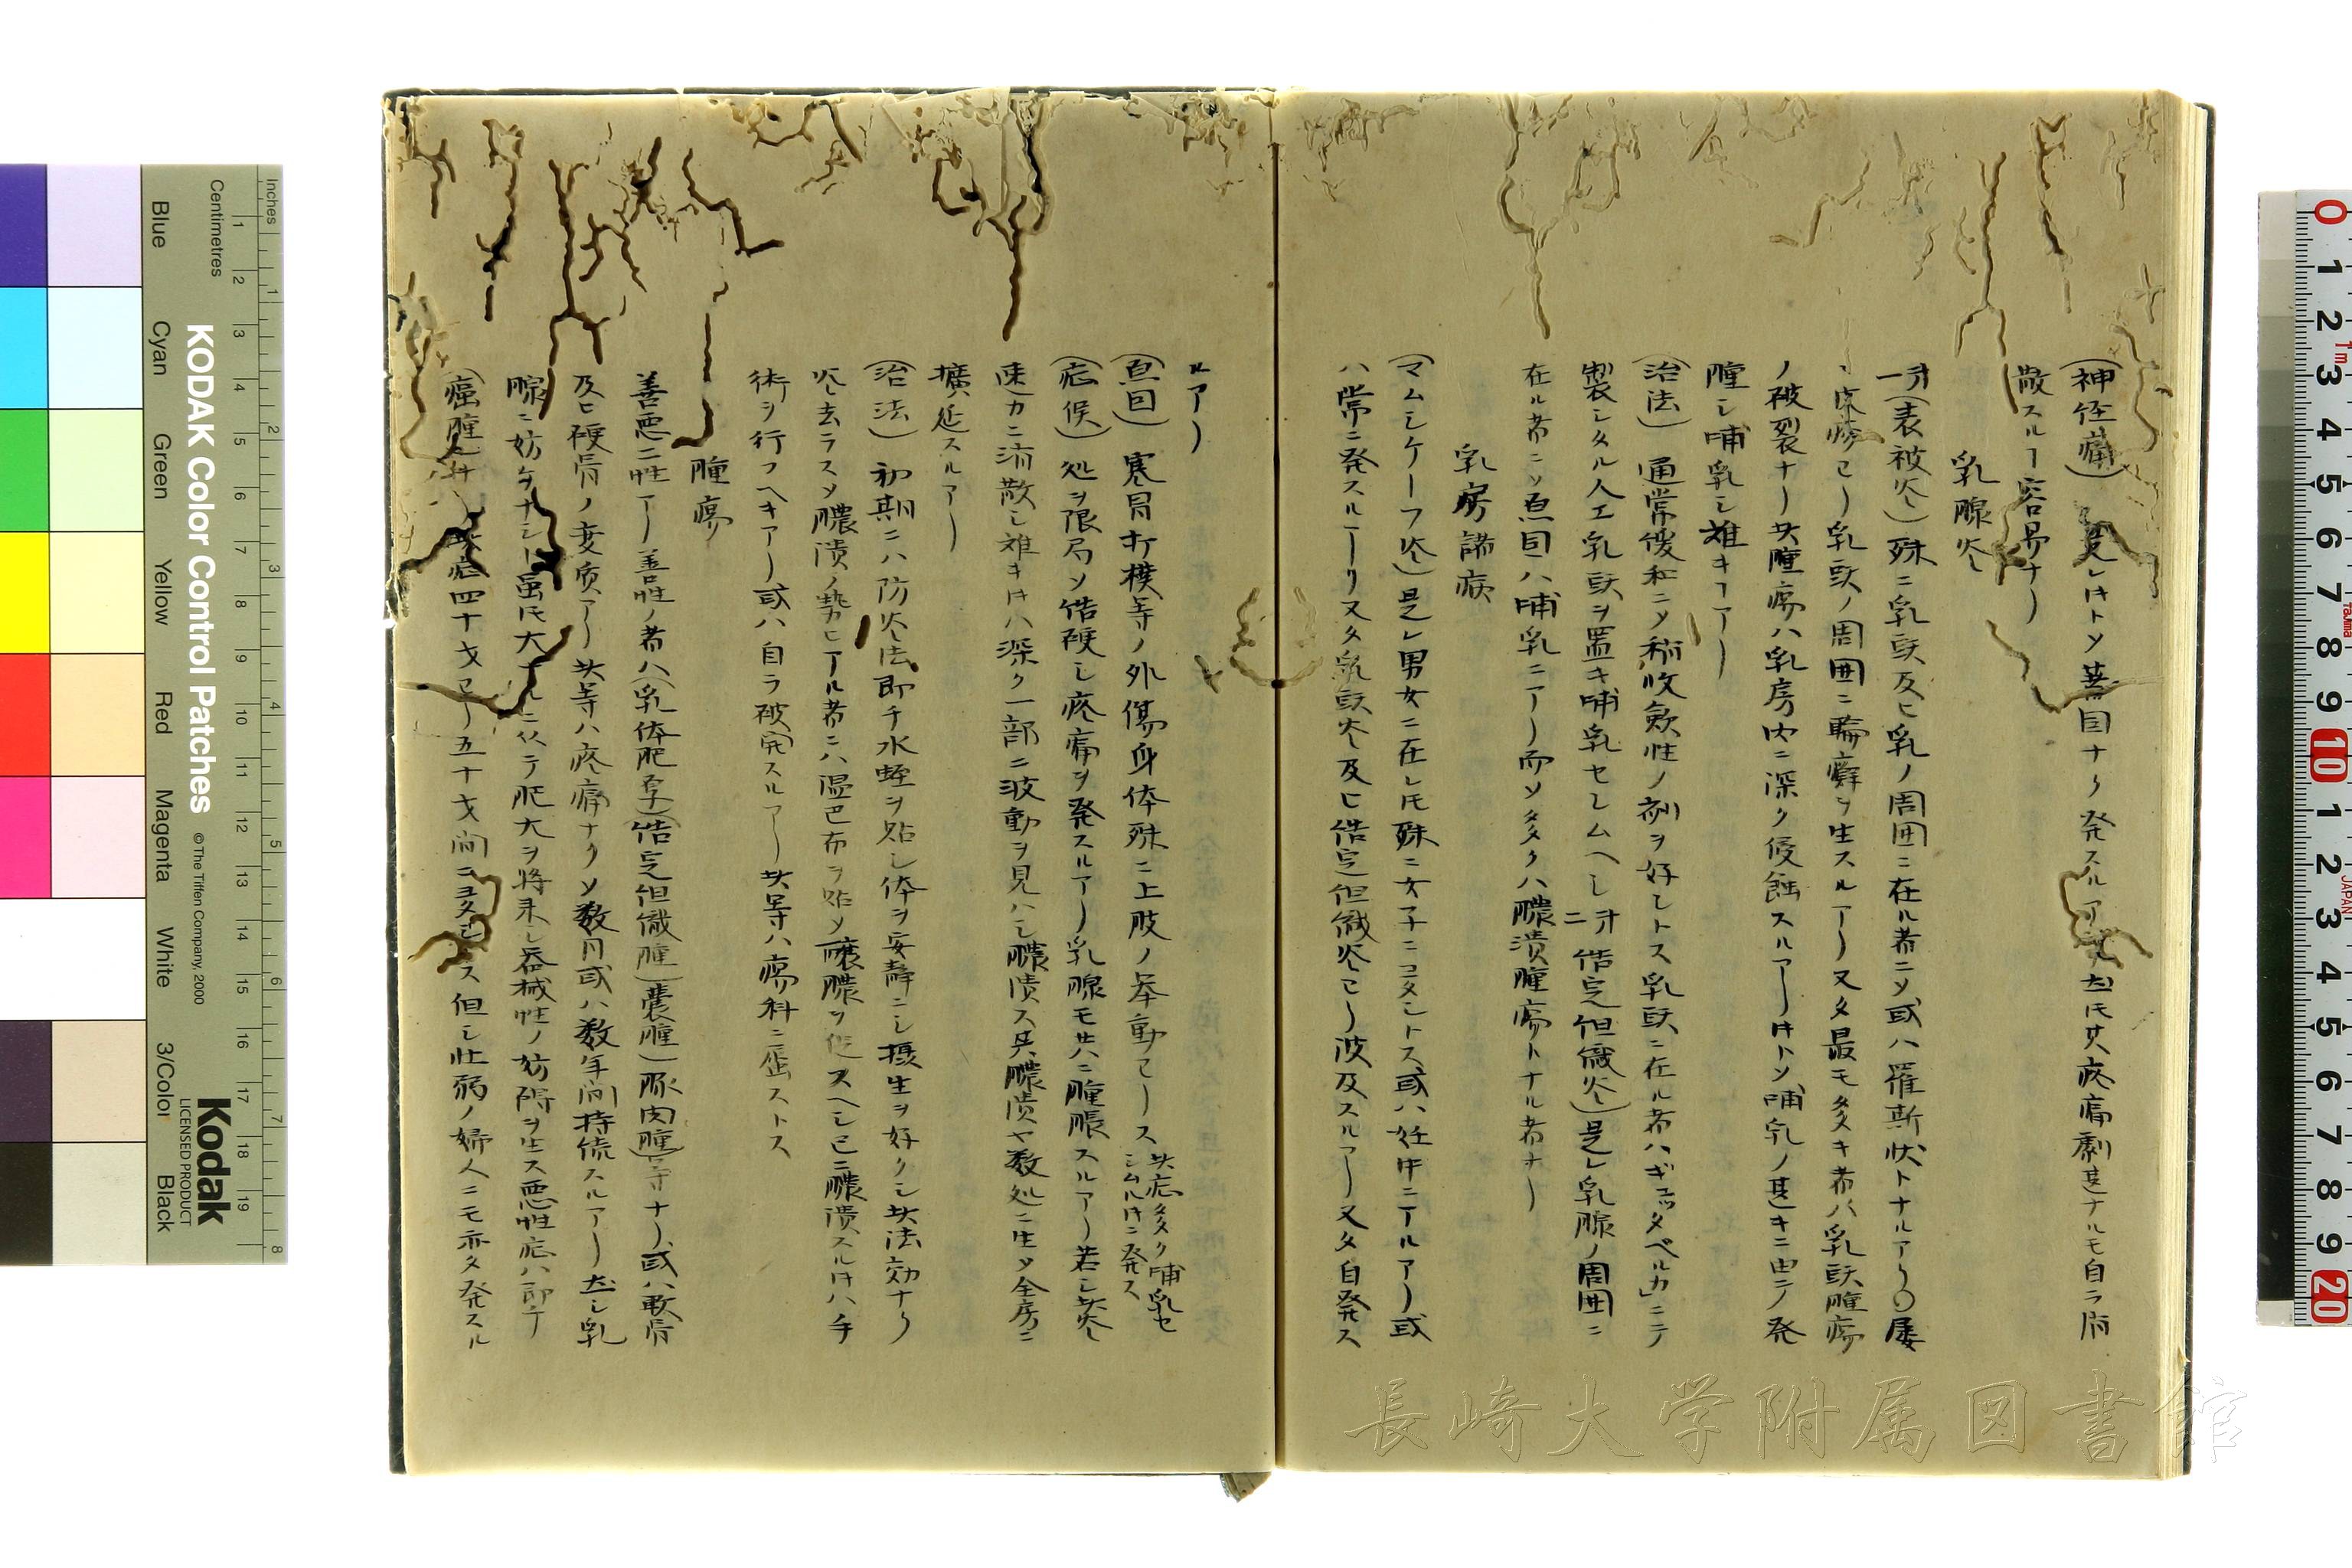 (神経痛) 是レ𪜈トメ善因ナク発スルアリ 然𪜈其疼痛劇甚ナルモ自ラ消
散スルヿ容易ナリ
乳腺炎
才一(表被炎)殊ニ乳頭及ヒ乳ノ周囲ニ在ル者ニソ或ハ羅斯状トナルアリ〇屡
疼痛アリ乳頭ノ周囲ニ輪癬ヲ生スルアリ又タ最モ多キ者ハ乳頭腫瘍
ノ破裂ナリ其腫瘍ハ乳房内ニ深ク侵蝕スルアリ 哺乳ノ甚キニ由テ発
腫シ哺乳シ難キヿアリ
(治法) 通常緩和ニソ稍收斂性ノ剤ヲ好シトス乳頭ニ在ル者ハギュッタペルカニテ
製シタル人工乳頭ヲ置キ哺乳セシムヘシ 才二 (結宓但織炎)是レ乳腺ノ周囲ニ
在ル者ニソ原因ハ哺乳ニアリ而ソ多クハ膿潰腫瘍トナル者ナリ
乳房諸病
(マムシケーフ炎)是レ男女ニ在レ𪜈殊ニ女子ニ多シトス或ハ妊中ニアルアリ或
ハ常ニ発スルアリ又タ乳頭炎及ヒ結宓但織炎ヨリ波及スルアリ又タ自発ス
ルアリ
(原因) 寒冒打撲等ノ外傷身体殊ニ上肢ノ挙動ヨリス 其症多ク哺乳セシムル𪜈ニ発ス
(症候) 処ヲ限局ソ結硬シ疼痛ヲ発スルアリ乳腺モ共ニ腫脹スルアリ若シ其炎
速カニ消散シ難キ𪜈ハ深ク一部ニ波動ヲ見ハシ膿潰ス其膿潰ヤ数処ニ生ソ全房ニ
擴延スルアリ
(治法) 初期ニハ防炎法即チ水蛭ヲ貼シ体ヲ安静ニシ摂生ヲ好クシ其法効ナク
炎去ラスソ膿潰ノ勢ヒアル者ニハ温巴布ヲ貼ソ醸膿ヲ促スヘシ已ニ膿潰スル𪜈ハ手
術ヲ行フヘキアリ或ハ自ラ破開スルアリ其等ハ瘍科ニ委ストス
腫瘍
善悪二性アリ善性ノ者ハ(乳体肥厚)(結宓但織腫)(嚢腫)(豚肉腫)等ナリ或ハ軟骨
及ヒ硬骨ノ変质アリ其等ハ疼痛ナクソ数月或ハ数年間持続スルアリ 故シ乳
腺ニ妨ケナシト雖𪜈大ナルニ従テ肥大ヲ将来シ器械性ノ妨碍ヲ生ス悪性症ハ即チ
(癌腫) 此症四十才ヨリ五十才間ニ多シトス但シ壮弱ノ婦人ニモ亦タ発スル
KODAK Color Control Patches
© The Tiffen Company, 2000
Kodak
LICENSED PRODUCT
Inches
Centimetres
Blue
Cyan
Green
Yellow
Red
Magenta
White
3/Color
Black
長崎大学附属図書館